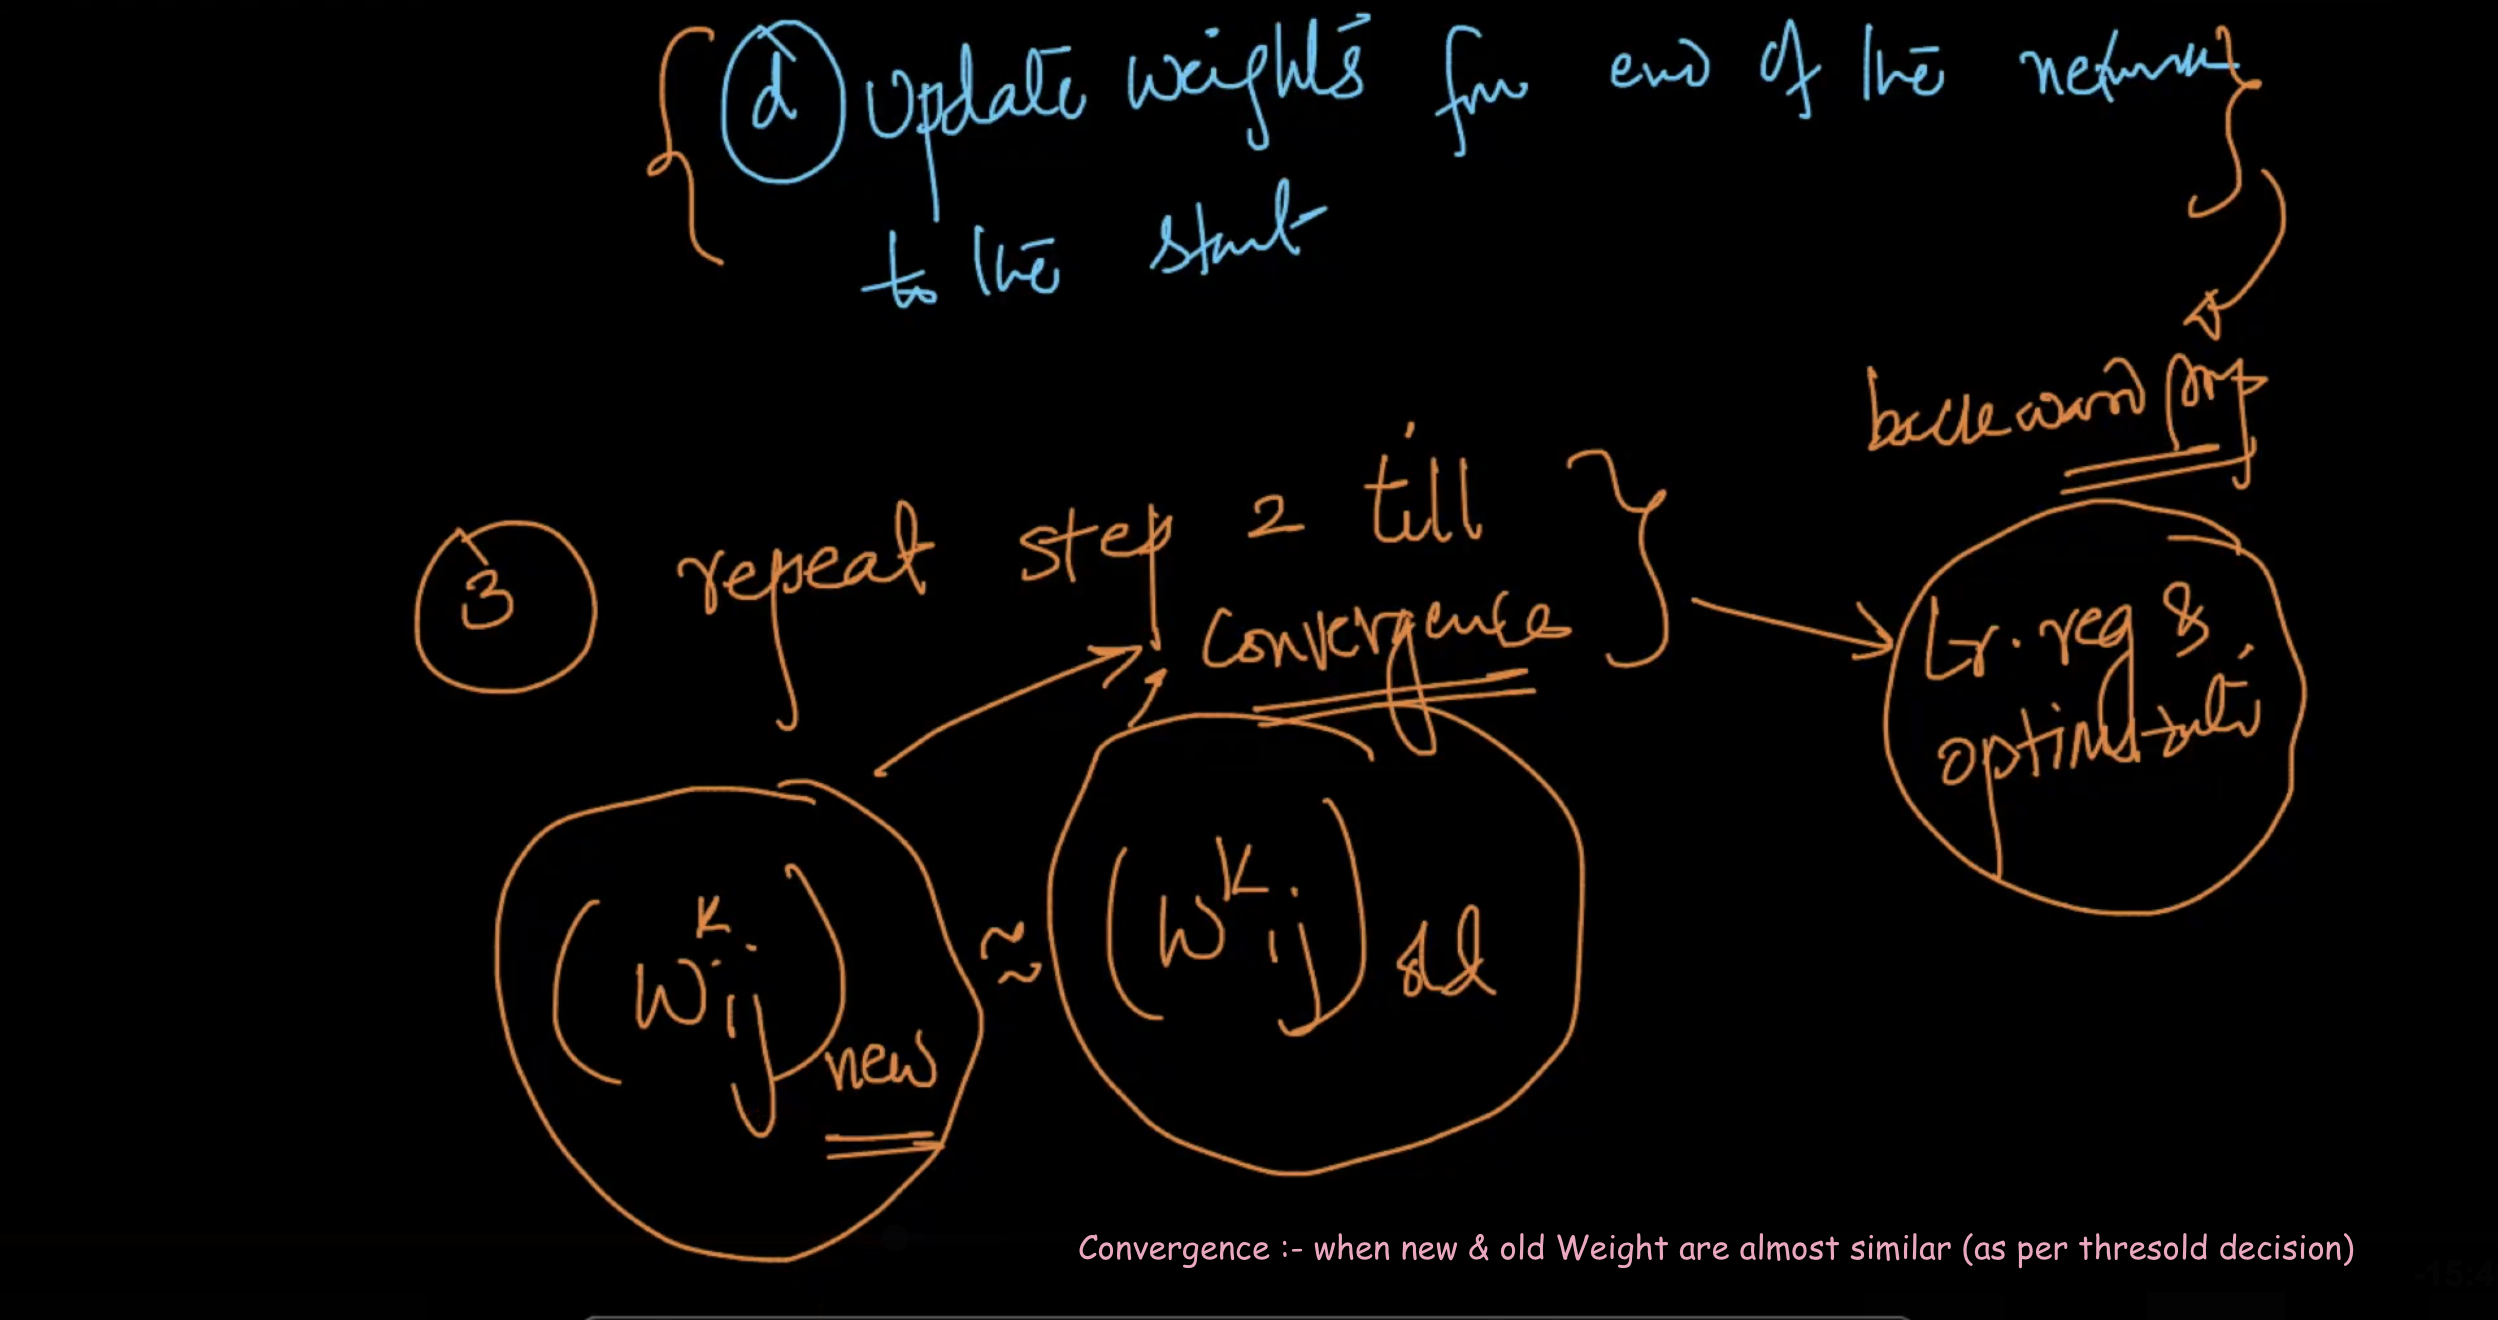 d Update weights from end of the network
to the start
backward prop
3 repeat step 2 till
convergence
Lr. reg &
optimization
(W^k_ij)new ≈ (W^k_ij)old
Convergence :- when new & old Weight are almost similar (as per thresold decision)